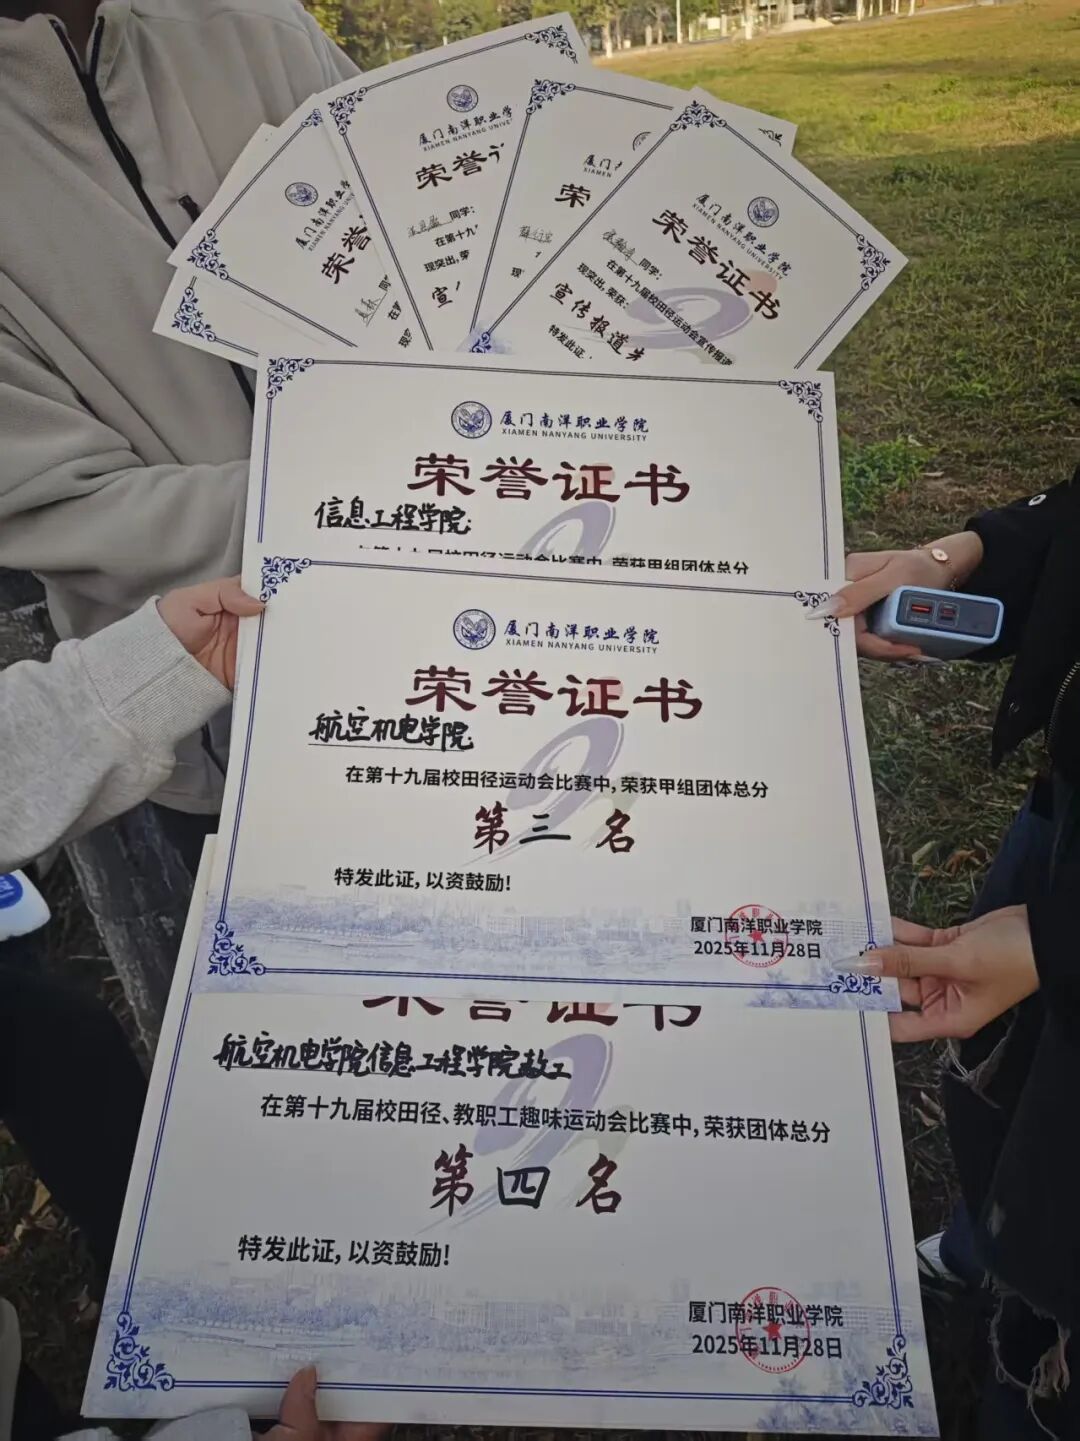 厦门南洋职业学
XIAMEN NANYANG UNIVERS
荣誉
同学：
在第十九
现突出,荣
宣
厦门南洋职业学
XIAMEN NANYANG UN
荣誉
同
在
现
厦门
XIAMEN
荣
现
厦门南洋职业学院
XIAMEN NANYANG UNIVERSITY
荣誉证书
同学：
在第十九届校田径运动会宣传报道
现突出,荣获：
宣传报道先
特发此证,
厦门南洋职业学院
XIAMEN NANYANG UNIVERSITY
荣誉证书
信息工程学院:
在第十九届校田径运动会比赛中,荣获甲组团体总分
厦门南洋职业学院
XIAMEN NANYANG UNIVERSITY
荣誉证书
航空机电学院:
在第十九届校田径运动会比赛中,荣获甲组团体总分
第三名
特发此证,以资鼓励!
厦门南洋职业学院
2025年11月28日
荣誉证书
航空机电学院信息工程学院教工
在第十九届校田径、教职工趣味运动会比赛中,荣获团体总分
第四名
特发此证,以资鼓励!
厦门南洋职业学院
2025年11月28日